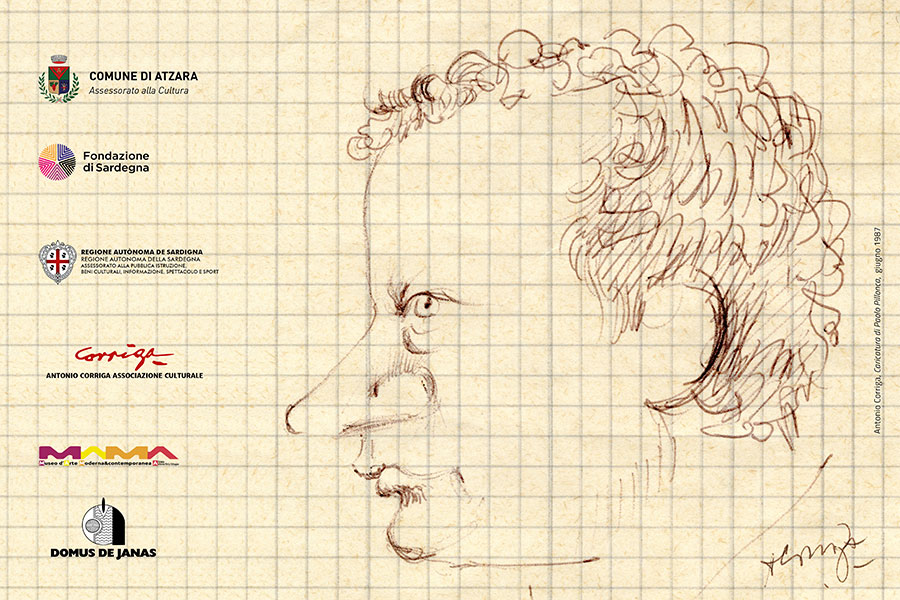 COMUNE DI ATZARA
Assessorato alla Cultura
Fondazione
di Sardegna
REGIONE AUTÒNOMA DE SARDIGNA
REGIONE AUTONOMA DELLA SARDEGNA
ASSESSORATO ALLA PUBBLICA ISTRUZIONE,
BENI CULTURALI, INFORMAZIONE, SPETTACOLO E SPORT
Corriga
ANTONIO CORRIGA ASSOCIAZIONE CULTURALE
MAMA
Museo d'Arte Moderna&contemporanea
DOMUS DE JANAS
Antonio Corriga, Caricatura di Paolo Pillonca, giugno 1987
A Corriga